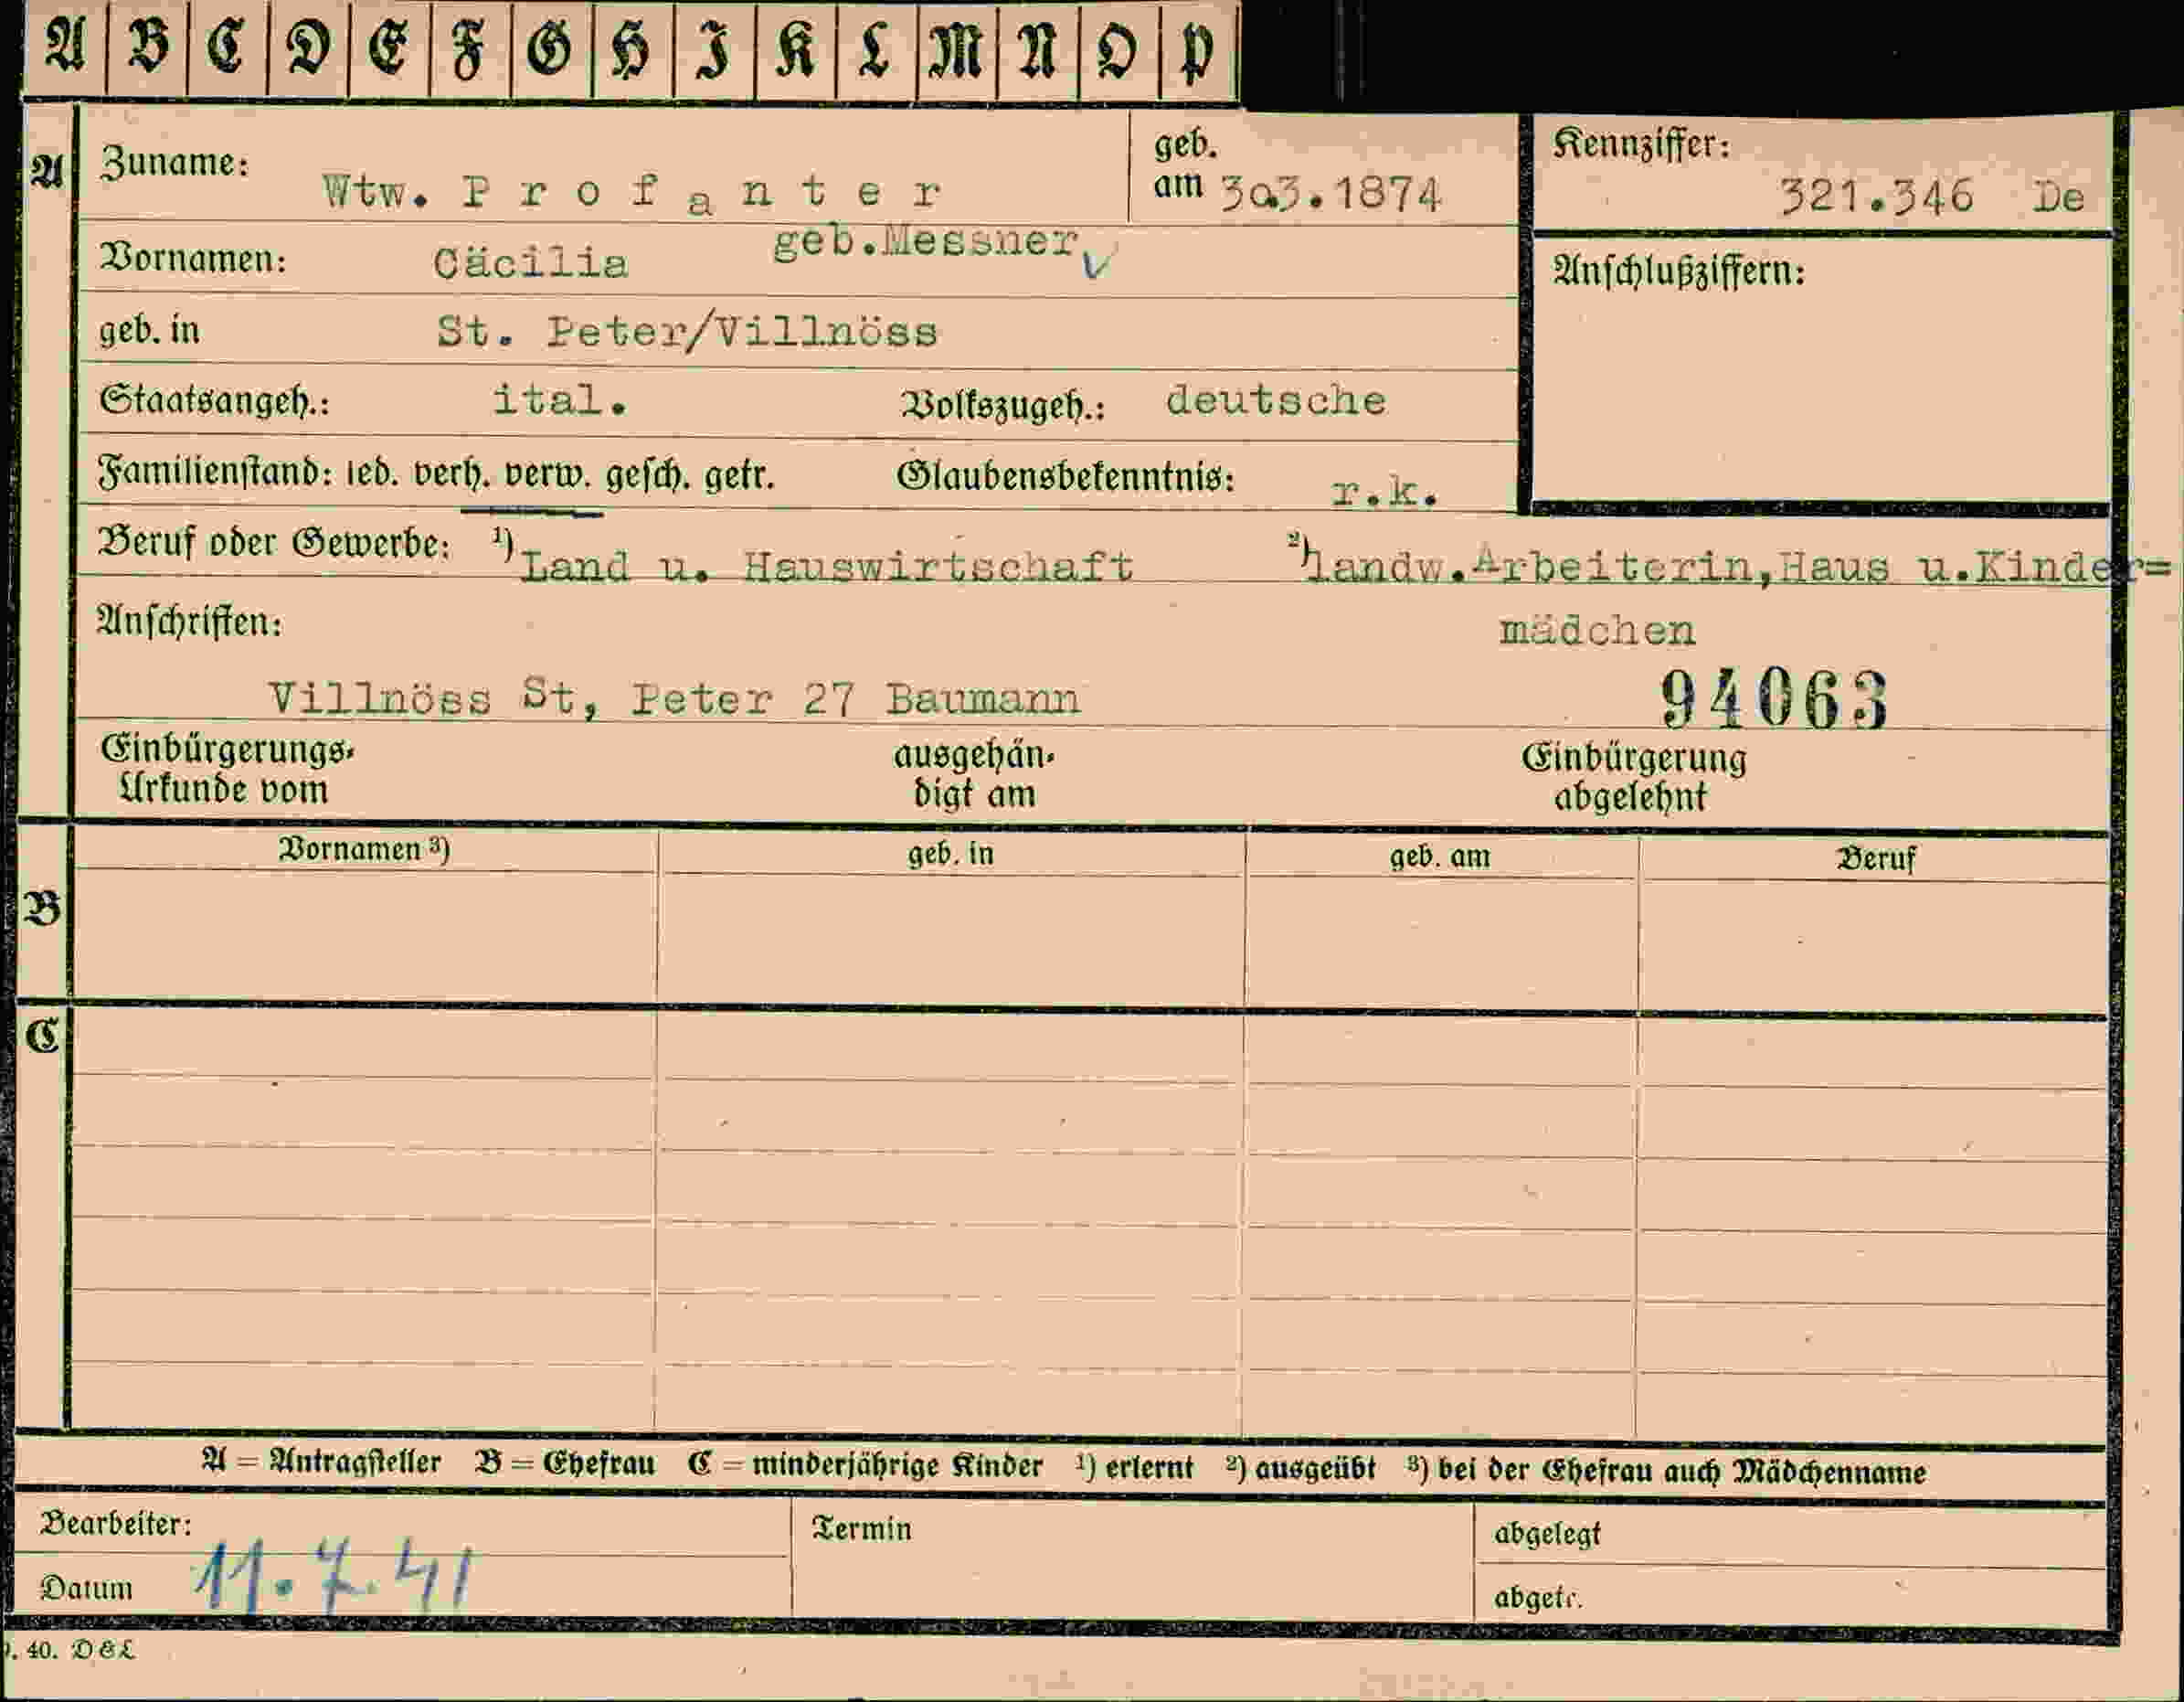 A B C D E F G H I K L M N O P
A
Zuname: Wtw. P r o f a n t e r
geb. am 30.3.1874
Kennziffer: 321.346 De
Vornamen: Cäcilia geb.Messner
Anschlußziffern:
geb. in St. Peter/Villnöss
Staatsangeh.: ital. Volkszugeh.: deutsche
Familienstand: led. verh. verw. gesch. getr. Glaubensbekenntnis: r.k.
Beruf oder Gewerbe: ¹) Land u. Hauswirtschaft ²) landw.Arbeiterin,Haus u.Kinder=
Anschriften: mädchen
Villnöss St, Peter 27 Baumann 94063
Einbürgerungs- ausgehän- Einbürgerung
Urkunde vom digt am abgelehnt
Vornamen ³) geb. in geb. am Beruf
B
C
A = Antragsteller B = Ehefrau C = minderjährige Kinder ¹) erlernt ²) ausgeübt ³) bei der Ehefrau auch Mädchenname
Bearbeiter: Termin abgelegt
Datum 11.7.41 abgetr.
. 40. D & L